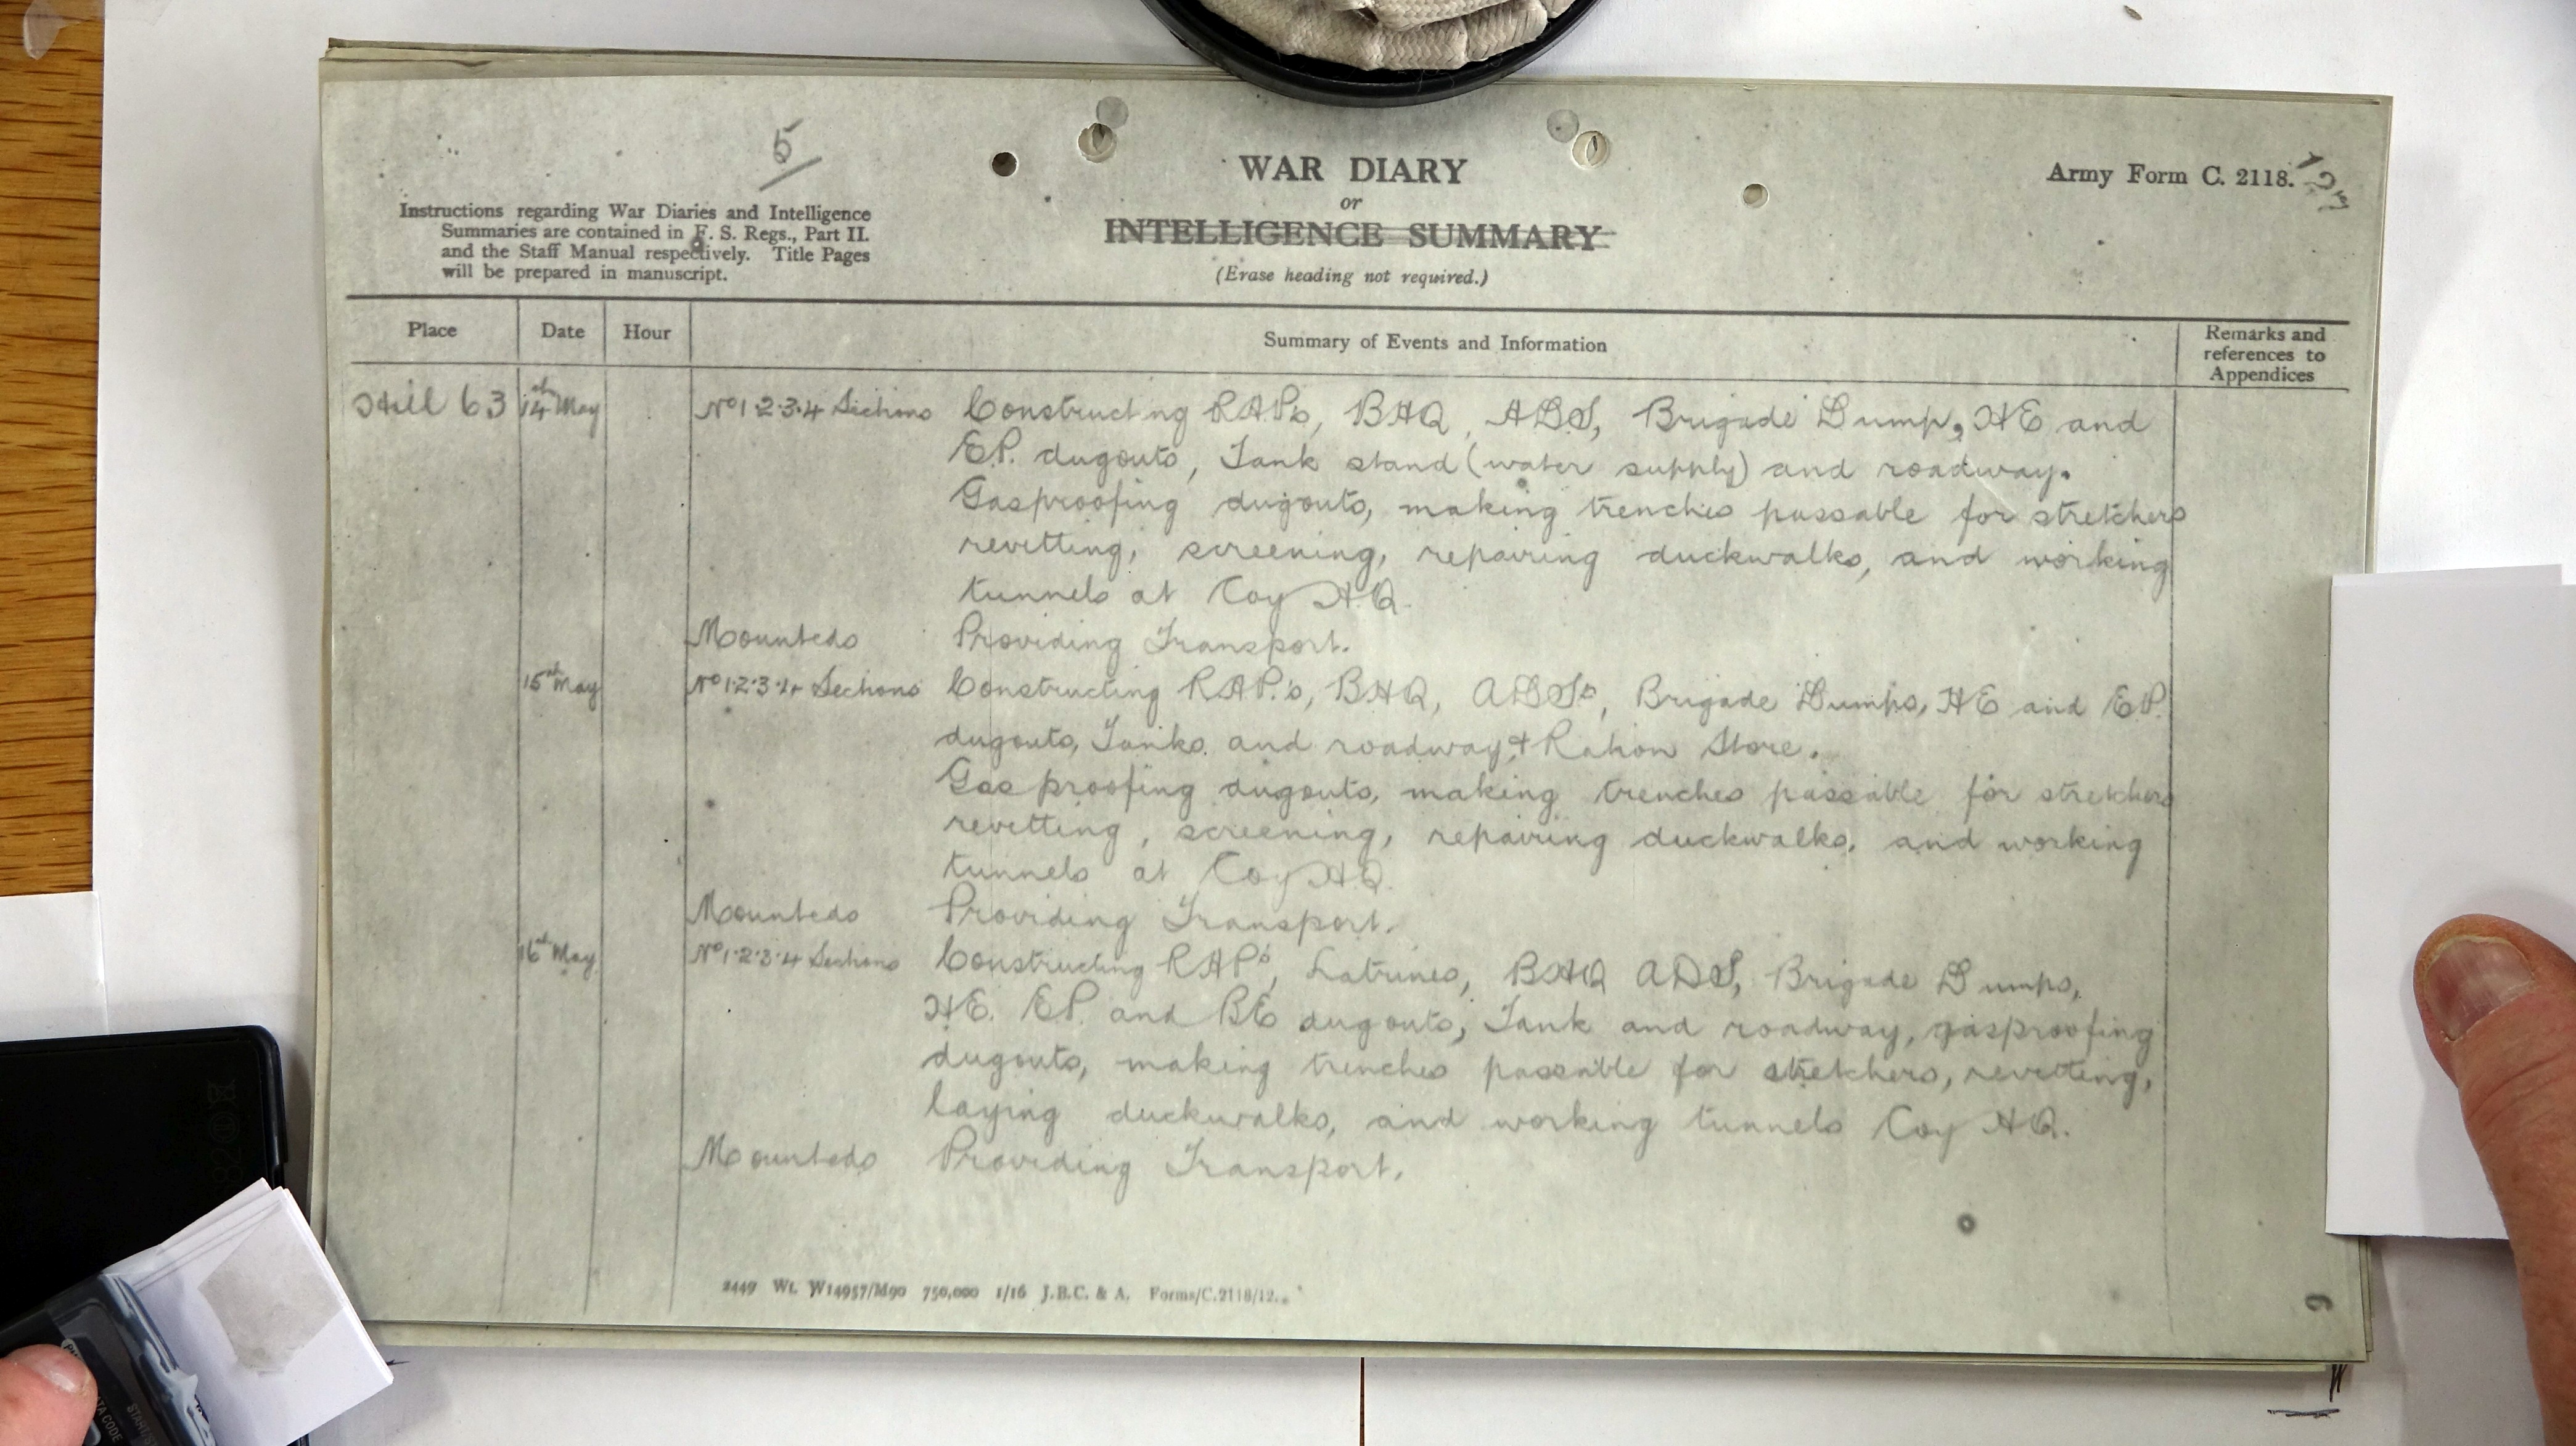 5
WAR DIARY
or
INTELLIGENCE SUMMARY
(Erase heading not required.)
Army Form C. 2118.
Instructions regarding War Diaries and Intelligence
Summaries are contained in F. S. Regs., Part II.
and the Staff Manual respectively. Title Pages
will be prepared in manuscript.
Place Date Hour Summary of Events and Information Remarks and
references to
Appendices
Hill 63 14th May No 1.2.3.4 Sections Constructing RAPs, BHQ, ADS, Brigade Dump, HE and
E.P. dugouts, Tank stand (water supply) and roadway.
Gasproofing dugouts, making trenches passable for stretchers
revetting, screening, repairing duckwalks, and working
tunnels at Coy H.Q.
Mounteds Providing Transport.
15th May No 1.2.3.4 Sections Constructing RAP's, BHQ, ADSs, Brigade Dumps, HE and E.P.
dugouts, Tanks and roadway, + Ration Store.
Gas proofing dugouts, making trenches passable for stretchers
revetting, screening, repairing duckwalks, and working
tunnels at Coy H.Q.
Mounteds Providing Transport.
16th May No 1.2.3.4 Sections Constructing RAPs, Latrines, BHQ ADS, Brigade Dumps,
HE. EP. and BE dugouts, Tank and roadway, gasproofing
dugouts, making trenches passable for stretchers, revetting,
laying duckwalks, and working tunnels Coy HQ.
Mounteds Providing Transport.
2449 Wt. W14957/M90 750,000 1/16 J.B.C. & A. Forms/C.2118/12.